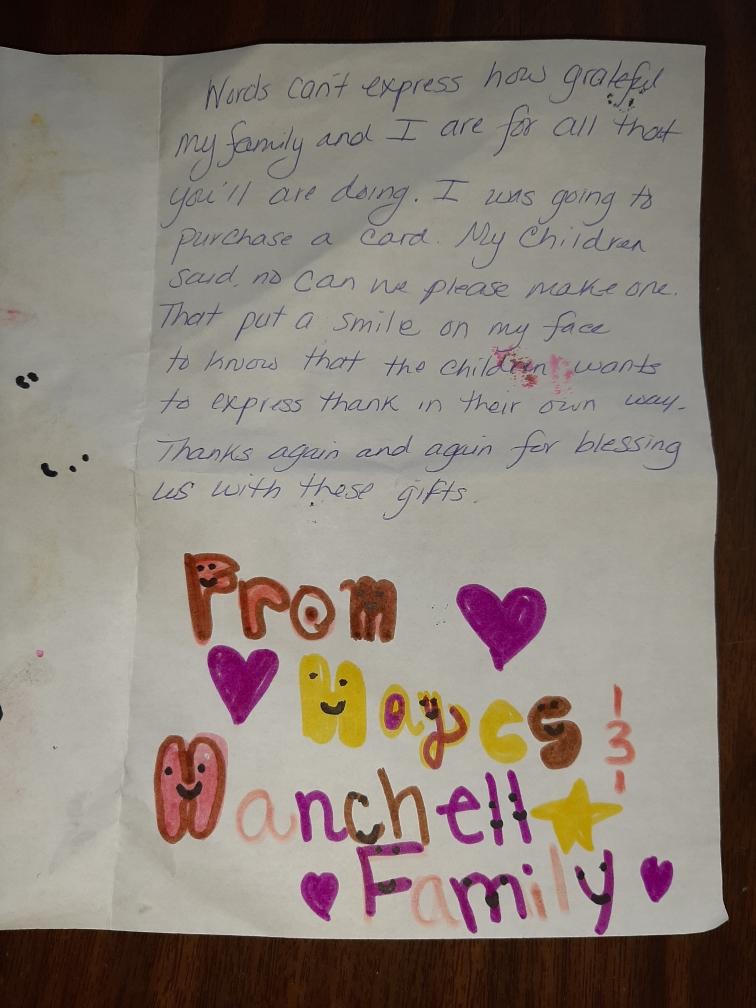 Words can't express how grateful
my family and I are for all that
you'll are doing. I was going to
purchase a card. My Children
said, no can we please make one.
That put a smile on my face
to know that the children wants
to express thank in their own way.
Thanks again and again for blessing
us with these gifts.
From
Hayes &
Manchell
Family